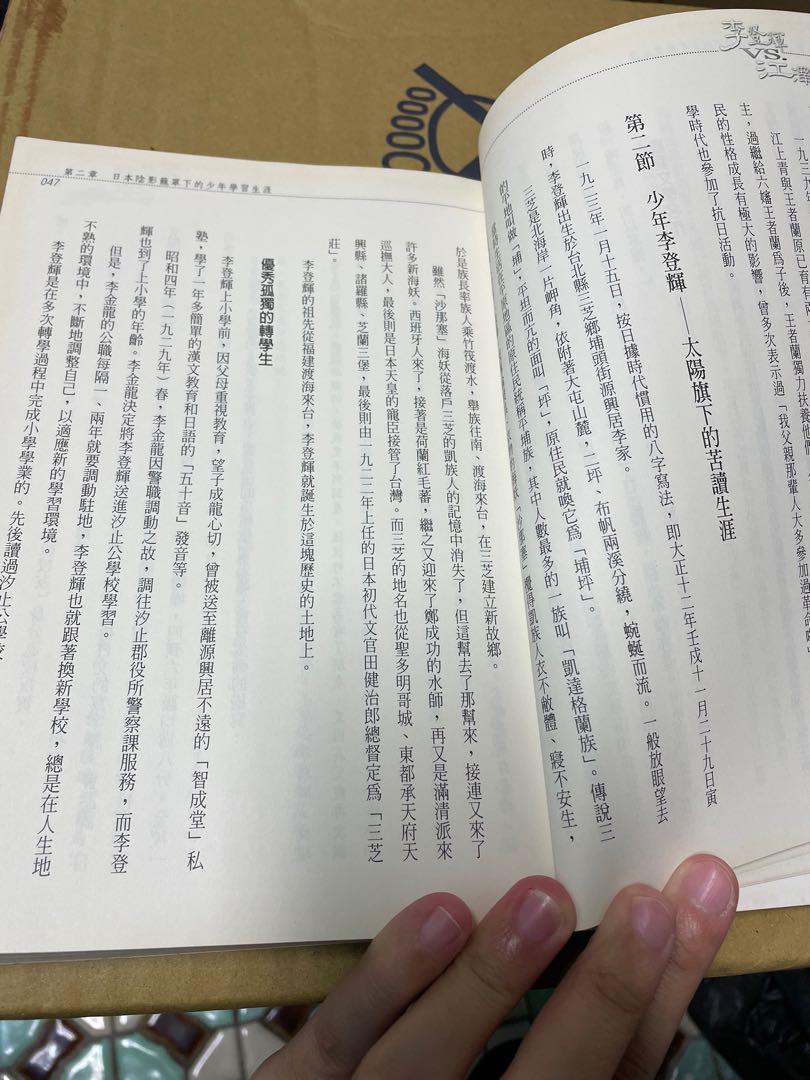 李登輝
VS.
江澤
一九三九年
江上青與王者蘭原已有
主，過繼給六嬸王者蘭為子後，王者蘭獨力扶養他
民的性格成長有極大的影響，曾多次表示過「我父親那輩人大多參加過革命
學時代也參加了抗日活動。
第二節　少年李登輝——太陽旗下的苦讀生涯
一九二三年一月十五日，按日據時代慣用的八字寫法，即大正十二年壬戌十一月二十九日寅
時，李登輝出生於台北縣三芝鄉埔頭街源興居李家。
三芝是北海岸一片岬角，依附著大屯山麓，二坪、布帆兩溪分繞，蜿蜒而流。一般放眼望去
的平地叫做「埔」，平坦而冗的面叫「坪」，原住民就喚它為「埔坪」。
地區的原住民統稱平埔族，其中人數最多的一族叫「凱達格蘭族」。傳說三
海妖「沙那塞」攪得凱族人衣不敝體、寢不安生，
第二章　日本陰影籠罩下的少年學習生涯
047
於是族長率族人乘竹筏渡水，舉族往南、渡海來台，在三芝建立新故鄉。
雖然「沙那塞」海妖從落戶三芝的凱族人的記憶中消失了，但這幫去了那幫來，接連又來了
許多新海妖。西班牙人來了，接著是荷蘭紅毛蕃，繼之又迎來了鄭成功的水師，再又是滿清派來
巡撫大人，最後則是日本天皇的寵臣接管了台灣。而三芝的地名也從聖多明哥城、東都承天府天
興縣、諸羅縣、芝蘭三堡，最後則由一九二二年上任的日本初代文官田健治郎總督定為「三芝
莊」。
李登輝的祖先從福建渡海來台，李登輝就誕生於這塊歷史的土地上。
優秀孤獨的轉學生
李登輝上小學前，因父母重視教育，望子成龍心切，曾被送至離源興居不遠的「智成堂」私
塾，學了一年多簡單的漢文教育和日語的「五十音」發音等。
昭和四年（一九二九年）春，李金龍因警職調動之故，調往汐止郡役所警察課服務，而李登
輝也到了上小學的年齡。李金龍決定將李登輝送進汐止公學校學習。
但是，李金龍的公職每隔一、兩年就要調動駐地，李登輝也就跟著換新學校，總是在人生地
不熟的環境中，不斷地調整自己，以適應新的學習環境。
李登輝是在多次轉學過程中完成小學學業的。先後讀過汐止公學校